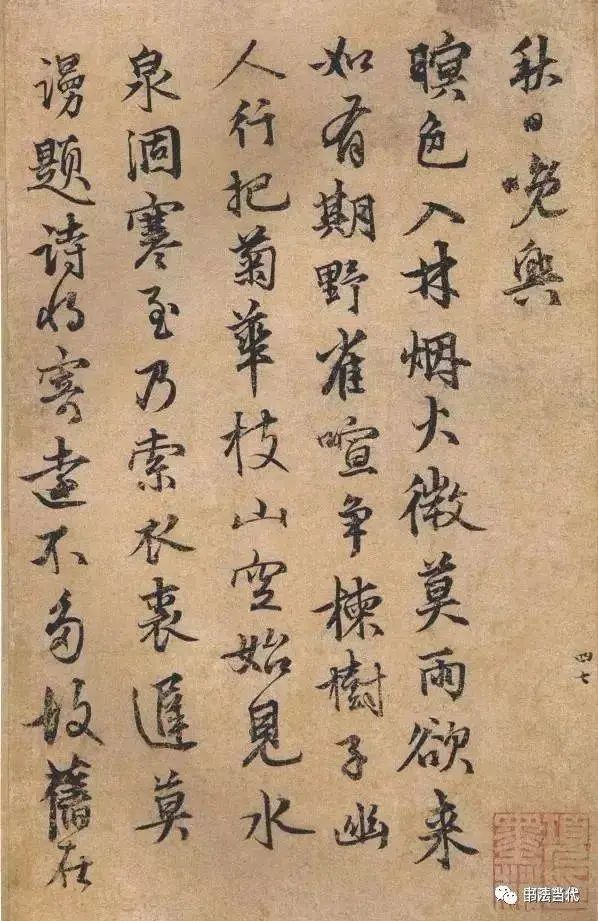 秋日晚興
暝色入林烟火微莫雨欲来
如有期野雀喧争楝樹子幽
人行把菊華枝山空始見水
泉涸寒至乃索衣裘遲莫
謾題詩將寄遠不多故舊在
四七
书法当代